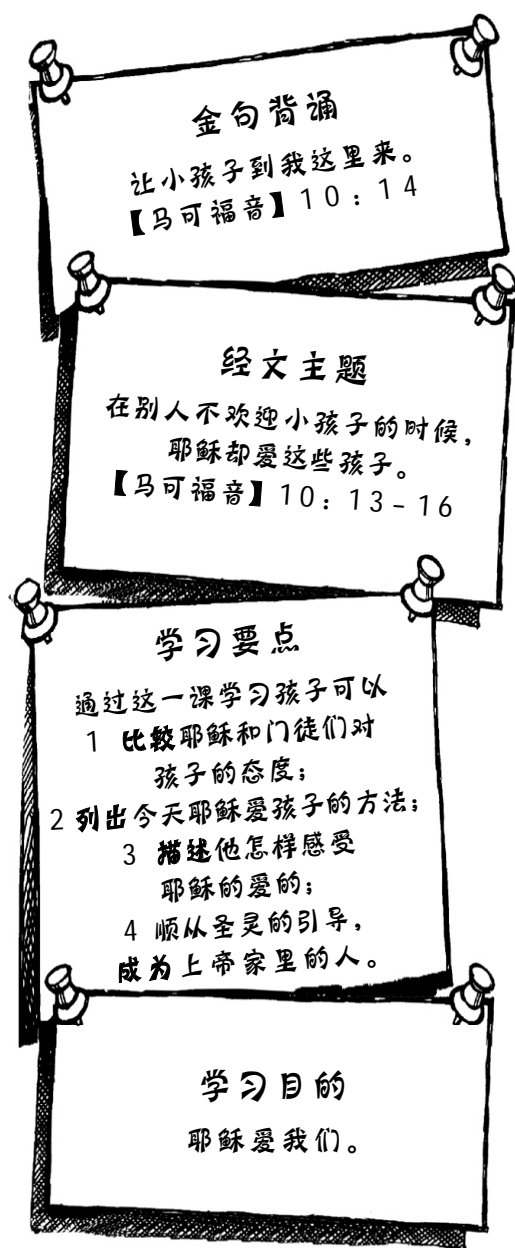 金句背诵
让小孩子到我这里来。
【马可福音】10：14
经文主题
在别人不欢迎小孩子的时候，
耶稣却爱这些孩子。
【马可福音】10：13-16
学习要点
通过这一课学习孩子可以
1 比较耶稣和门徒们对
孩子的态度；
2 列出今天耶稣爱孩子的方法；
3 描述他怎样感受
耶稣的爱的；
4 顺从圣灵的引导，
成为上帝家里的人。
学习目的
耶稣爱我们。